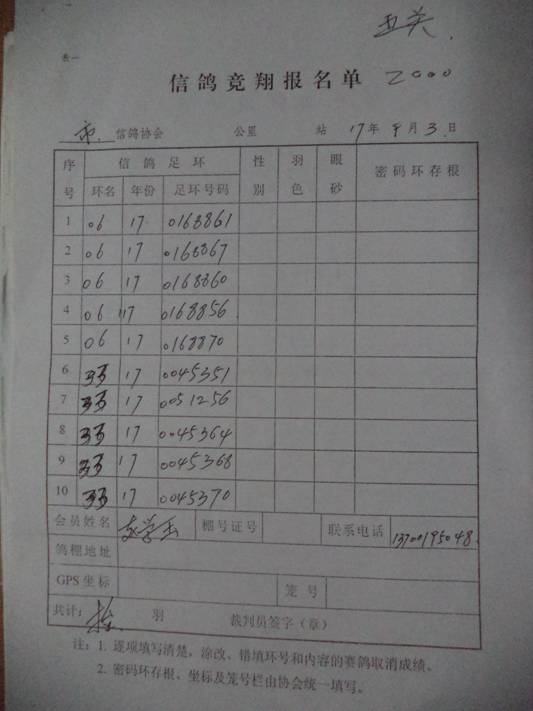 五关.
表一
信鸽竞翔报名单 2000
市 信鸽协会 公里 站 17年 9月 3日
序号 信鸽足环 性别 羽色 眼砂 密码环存根
环名 年份 足环号码
1 06 17 0168861
2 06 17 0168867
3 06 17 0168860
4 06 17 0168856
5 06 17 0168870
6 17 0045351
7 17 0051256
8 17 0045364
9 17 0045368
10 17 0045370
会员姓名 棚号证号 联系电话 13700195048
鸽棚地址
GPS坐标 笼号
共计: 羽 裁判员签字(章)
注:1. 逐项填写清楚,涂改、错填环号和内容的赛鸽取消成绩。
2. 密码环存根、坐标及笼号栏由协会统一填写。